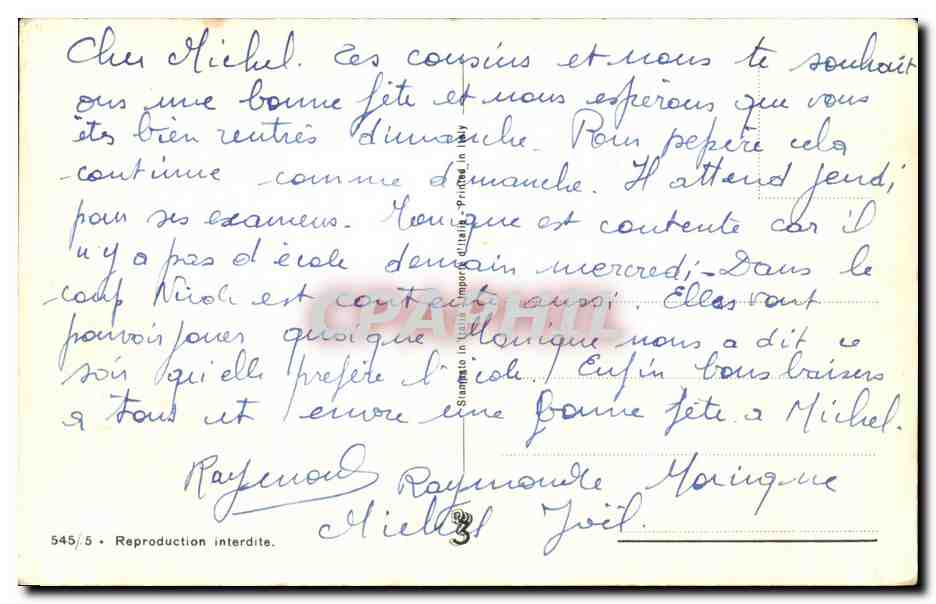 Cher Michel. Tes cousins et nous te souhait
ons une bonne fête et nous espérons que vous
êtes bien rentrés dimanche. Pour pepère cela
continue comme dimanche. Il attend jeudi
pour ses examens. Monique est contente car il
n'y a pas d'école demain mercredi - Dans le
coup Nicole est contente aussi. Elles vont
pouvoir jouer quoique Monique nous a dit ce
soir qu'elle préfère l'école! Enfin bons baisers
a tous et encore une bonne fête a Michel.
Raymond Raymonde Monique
Michel Joël.
545/5 • Reproduction interdite.
Stampato in Italia - Importé d'Italie - Printed in Italy
CPAPHIL